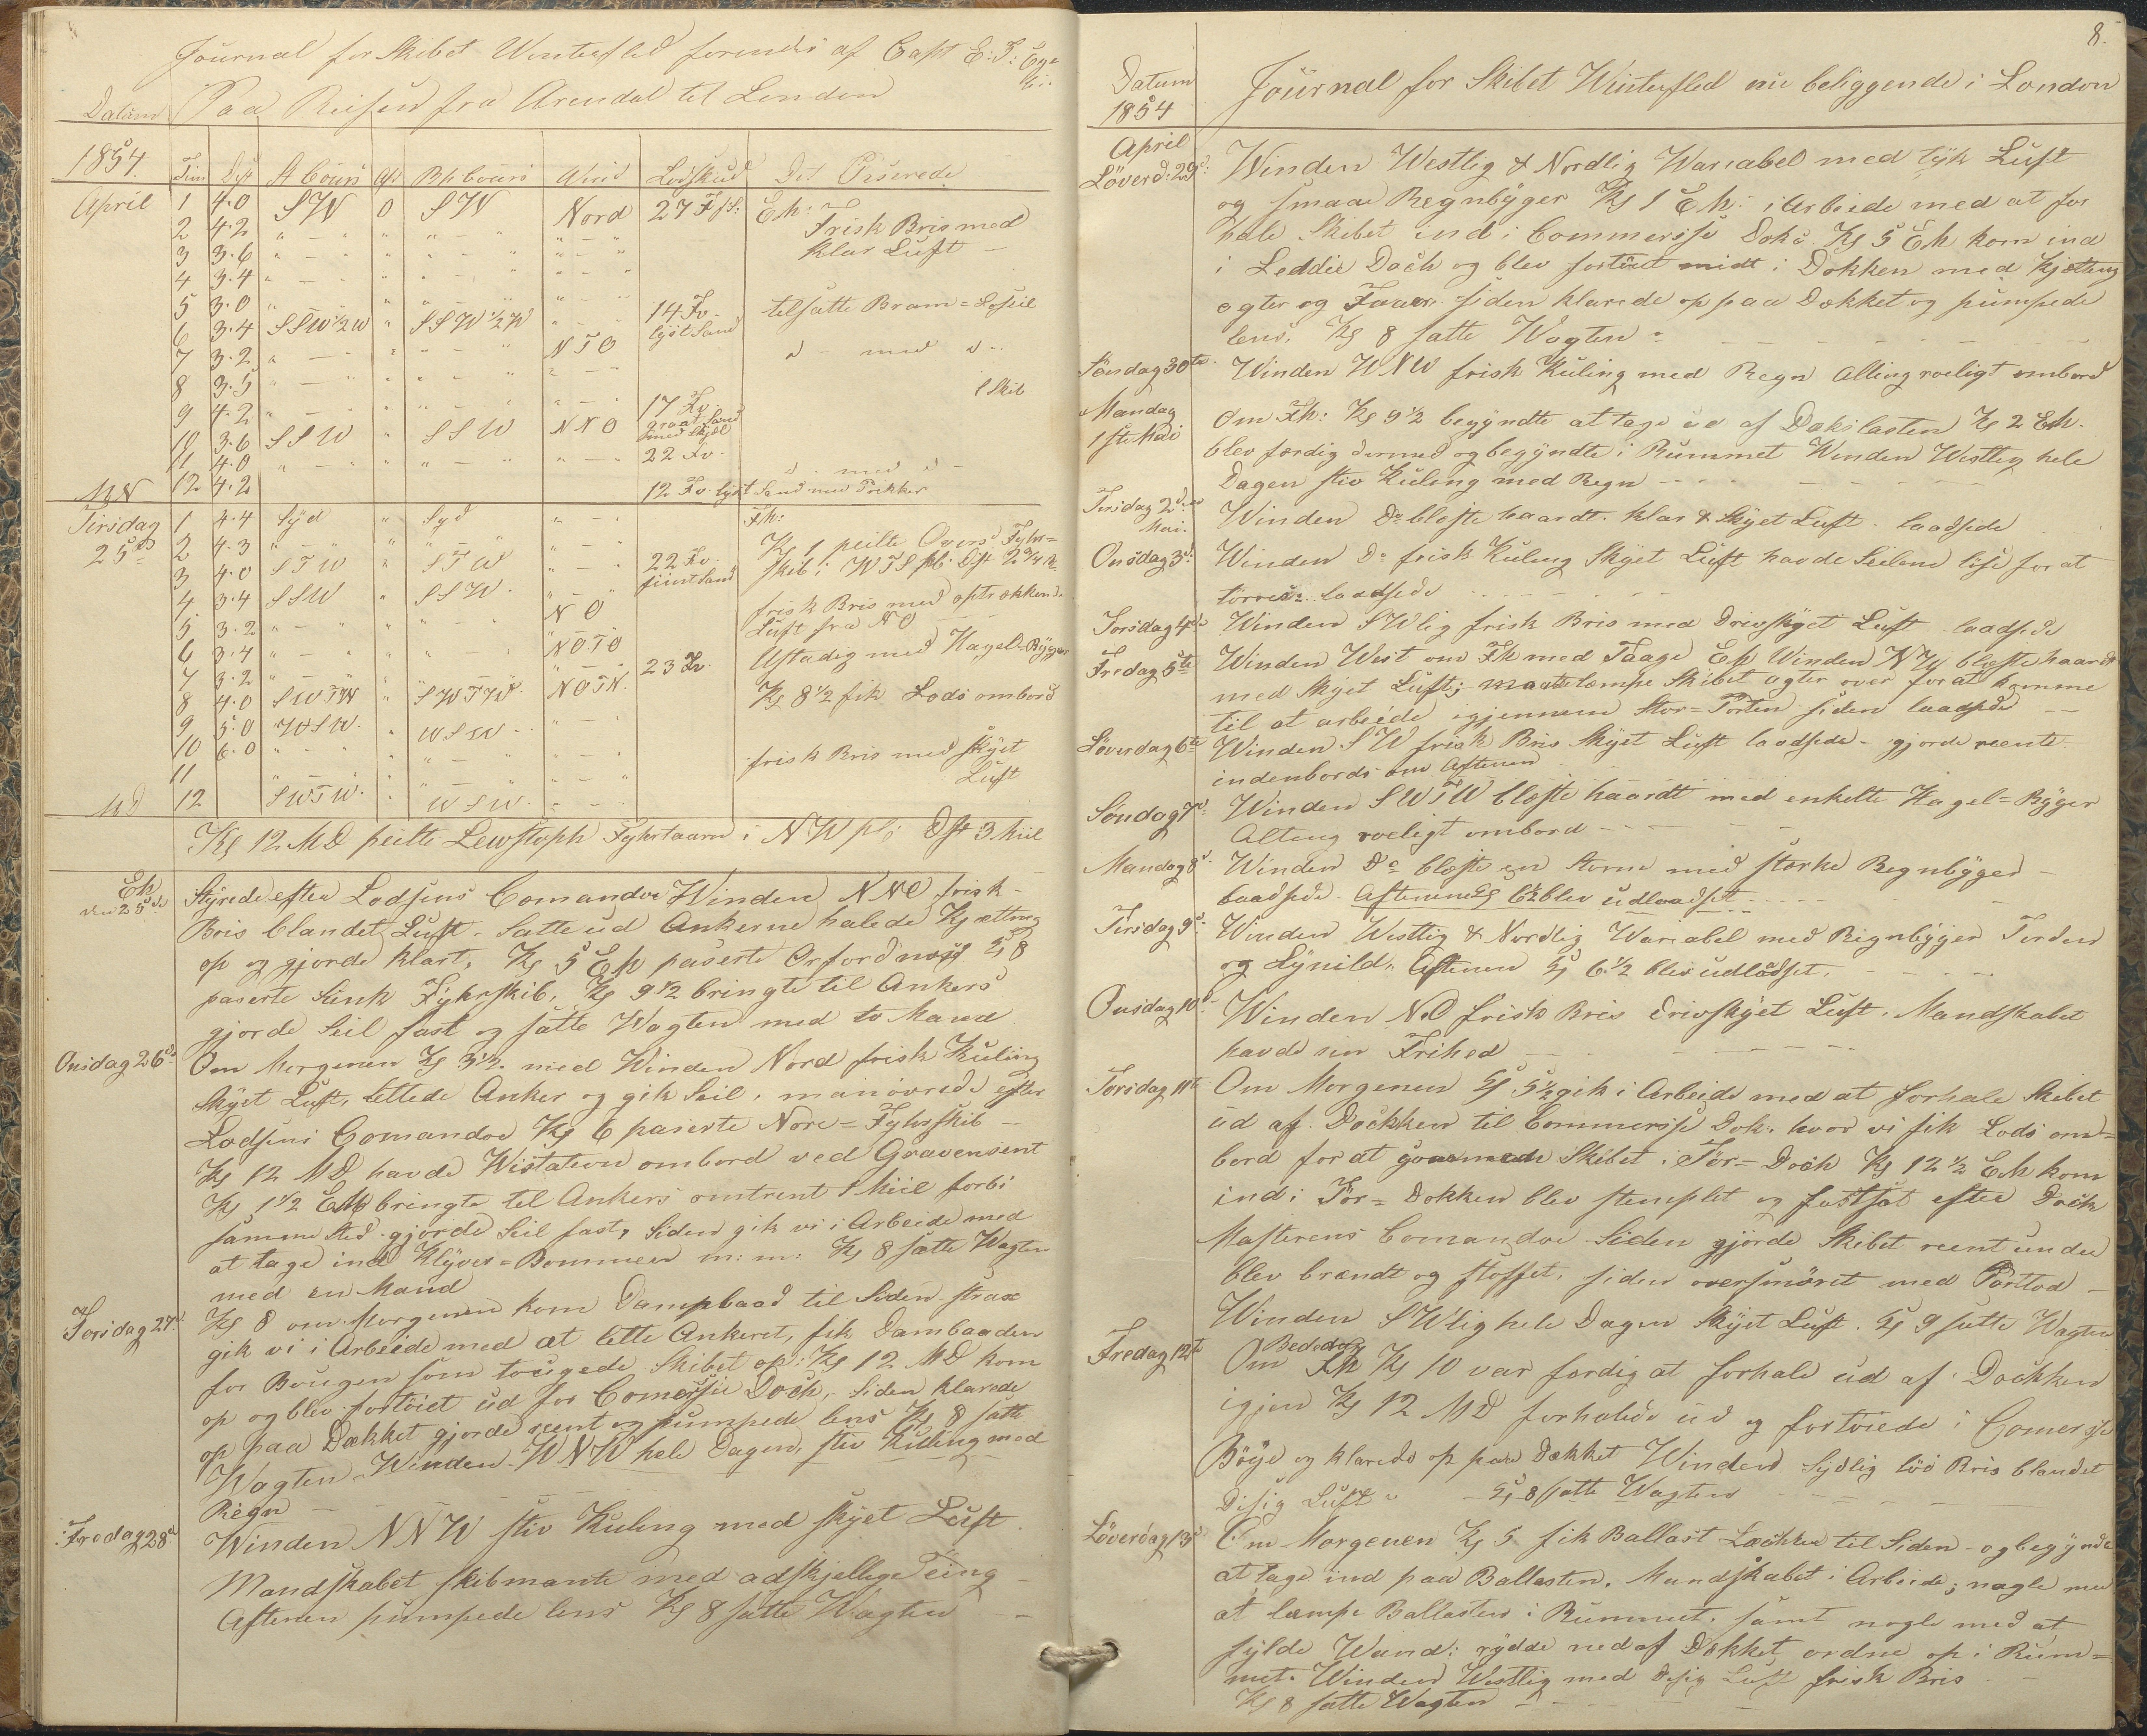 Journal for Skibet Winterflid førendes af Capt E: T:
Paa Reisen fra Arendal til London
Datum
1854. Tim Dist St Cours Afd Bh Cours Wind Lodskud Det Paserede
April 1 4.0 SW 0 SW Nord 27 F Eh:
2 4.2 " - " " " - " " - " Frisk Bris med
3 3.6 " - " " " - " " - " klar Luft -
4 3.4 " - " " " - " " - "
5 3.0 " " " " - " 14 Fv. tilsatte Bram=Lofseil
6 3.4 SSW 1/2 W " SSW 1/2 W " - " lyst Sand
7 3.2 " - " " " - " NTO d - med d -
8 3.5 " - " " " - " " - " 1 Skib
9 4.2 " - " " " - " " - " 17 Fv.
10 3.6 SSW " SSW NNO graat Sand med Skjæl
11 4.0 " - " " " - " " - " 22 Fv. d - med d -
MN 12 4.2 12 Fv. lyst Sand med Prikker
Tirsdag 1 4.4 Syd " Syd " - " Fh:
25de 2 4.3 " - " " " - " " - " Kl 1 peilte Fyhr=
3 4.0 STW " STW " - " 22 Fv. Skib i WTS pl. Dist 2 3/4 M
4 3.4 SSW " SSW. " - " fiint Sand
5 3.2 " - " " " - " NO frisk Bris med optrækkend.
6 3.4 " - " " " - " NOTO Luft fra NO
7 3.2 " - " " " - " " - " 23 Fv. Ustadig med Hagel=Byger
8 4.0 SWTW " SWTW. NOTN. Kl 8 1/2 fik Lods ombord
9 5.0 WSW. " WSW - " - "
10 6.0 " - " " " - " " - " frisk Bris med skyet
11 " - " " " - " " - " Luft
MD 12 SWTW. " WSW. " - "
Kl 12 MD peilte Lewstoph Fyhrtaarn i NW pl: Dst 3 Miil
Eh
den 25de Styrede efter Lodsens Comandoe Winden NNO frisk -
Bris blandet Luft. Satte ud Ankerne halede Kjætting
op og gjorde klart, Kl 5 Eh paserte Orfordnæs Kl 8
paserte Sunk Fyhrskib, Kl 9 1/2 bringte til Ankers
gjorde Seil fast og satte Wagten med to Mand
Onsdag 26de Om Morgenen Kl 3 1/2 med Winden Nord frisk Kuling
skyet Luft, lettede Anker og gik Seil, manøvrede efter
Lodsens Comandoe Kl 6 paserte Nore=Fyhrskib -
Kl 12 MD havde Wistation ombord ved Gravensent
Kl 1 1/2 Eh bringte til Ankers omtrent 1 Miil forbi
samme Sted gjorde Seil fast, Siden gik vi i Arbeide med
at tage ind Klyver=Bommen m:m: Kl 8 satte Wagten
med en Mand
Torsdag 27d. Kl 8 om Morgenen kom Dampbaad til Siden strax
gik vi i Arbeide med at lette Ankeret, fik Dambaaden
for Bougen som tougede Skibet op: Kl 12 MD kom
op og blev fortöiet ud for Comersie Dock, Siden klarede
op paa Dækket gjorde reent og pumpede lens Kl 8 satte
Wagten Winden WNW hele Dagen, stiv Kuling med
Regn -
Fredag 28d Winden NNW stiv Kuling med skyet Luft
Mandskabet skibmante med adskjellige Ting -
Aftenen pumpede lens Kl 8 satte Wagten -
8.
Datum
1854
Journal for Skibet Winterflid nu beliggende i London
April
Löverd: 29d: Winden Westlig & Nordlig Wariabel med tyk Luft
og smaae Regnbyger Kl 1 Eh: i Arbeide med at for
hale Skibet ind i Commersse Dok: Kl 5 Eh kom ind
i Leddie Dock og blev fortöiet midt i Dokken med Kjætting
agter og Foran siden klarede op paa Dækket og pumpede
lens, Kl 8 satte Wagten -
Söndag 30te Winden WNW frisk Kuling med Regn Alting roeligt ombord
Mandag
1ste Mai Om Fh: Kl 9 1/2 begyndte at tage ud af Dækslasten Kl 2 Eh.
blev færdig dermed og begyndte i Rummet Winden Westlig hele
Dagen stiv Kuling med Regn - - -
Tirsdag 2den
Mai. Winden Do blæste haardt. klar & Skyet Luft laadsede
Onsdag 3d. Winden Do frisk Kuling Skyet Luft havde Seilene löse for at
törres. laadsede - - -
Torsdag 4de Winden SWlig frisk Bris med Drivskyet Luft laadsede
Fredag 5te Winden West om Fh med Taage Eh Winden NW blæste haardt
med Skyet Luft; maate lempe Skibet agter over for at komme
til at arbeide igjennem Stor=Porten siden laadsede -
Löverdag 6te Winden SW frisk Bris Skyet Luft laadsede - gjorde reente
indenbords om Aftenen
Söndag 7d. Winden SWTW blæste haardt med enkelte Hagel=Byger
Alting roeligt ombord - - -
Mandag 8d. Winden Do blæste en Storm med stærke Regnbyger -
laadsede Aftenen Kl 6 1/2 blev udlaadset - - -
Tirsdag 9d. Winden Westlig & Nordlig Wariabel med Regnbyger Torden
og Lynild. Aftenen Kl 6 1/2 blev udlådset. - - -
Onsdag 10d Winden NO frisk Bris Drivskyet Luft. Mandskabet
havde sin Frihed - - -
Torsdag 11te Om Morgenen Kl 5 1/2 gik i Arbeide med at forhale Skibet
ud af Dockken til Commersse Dok. hvor vi fik Lods om=
bord for at Skibet i Tör=Dock Kl 12 1/2 Eh kom
ind i Tör=Dokken blev stemplet og fastsat efter Dock
Masterens Comandoe Siden gjorde Skibet reent under
blev brændt og stoffet, siden oversmöret med -
Winden SWlig hele Dagen Skyet Luft. Kl 9 satte Wagten
Fredag 12te Bededag
Om Fh Kl 10 var færdig at forhale ud af Dockken
igjen Kl 12 MD forhalede ud og fortöiede i Comersse
Böye og klarede op paa Dækket Winden Sydlig löi Bris blandet
Disig Luft - - Kl 8 satte Wagten - - -
Löverdag 13d Om Morgenen Kl 5 fik Ballast Læckter til Siden - og begynde
at tage ind paa Ballasten. Mandskabet i Arbeide; nogle med
at læmpe Ballasten i Rummet, samt nogle med at
fylde Wand: rydde ned af Dækket ordne op i Rum=
met. Winden Westlig med Disig Luft frisk Bris
Kl 8 satte Wagten - - -